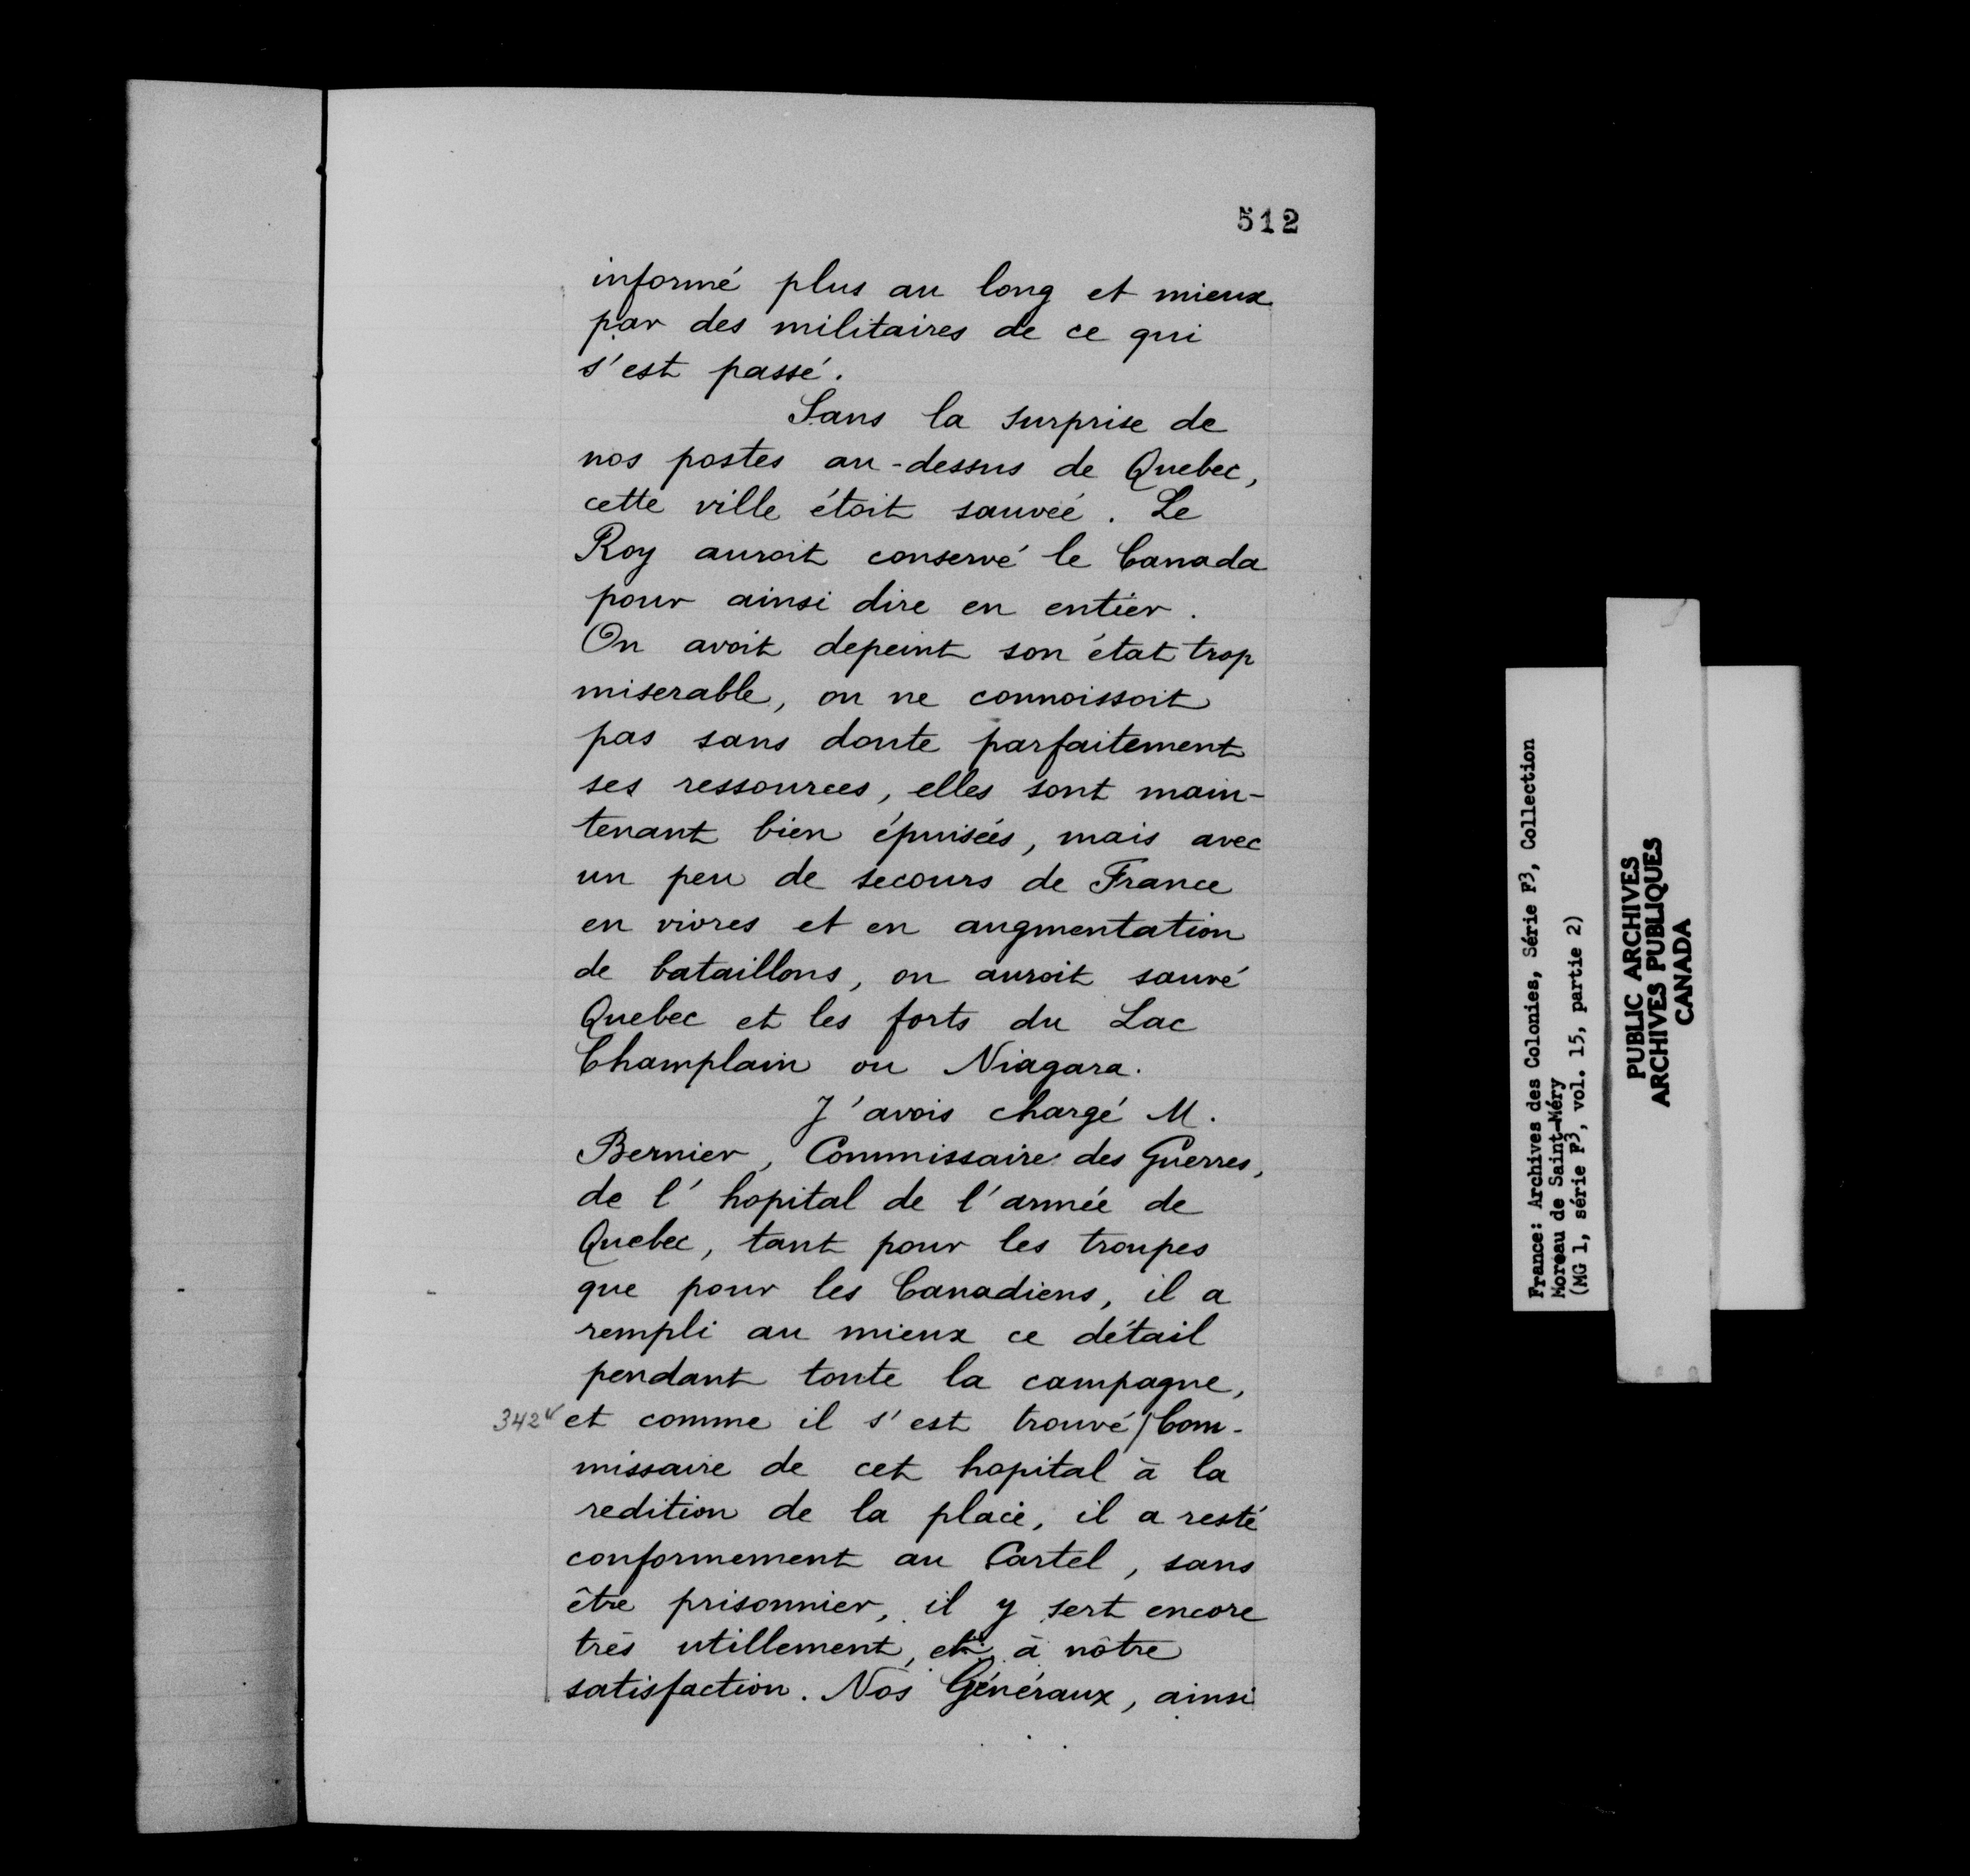 512
informé plus au long et mieux
par des militaires de ce qui
s'est passé.
Sans la surprise de
nos postes au-dessus de Quebec,
cette ville étoit sauvée. Le
Roy auroit conservé le Canada
pour ainsi dire en entier.
On avoit depeint son état trop
miserable, on ne connoissoit
pas sans doute parfaitement
ses ressources, elles sont main-
tenant bien épuisées, mais avec
un peu de secours de France
en vivres et en augmentation
de bataillons, on auroit sauvé
Quebec et les forts du Lac
Champlain ou Niagara.
J'avois chargé M.
Bernier, Commissaire des Guerres,
de l'hopital de l'armée de
Quebec, tant pour les troupes
que pour les Canadiens, il a
rempli au mieux ce détail
pendant toute la campagne,
342v et comme il s'est trouvé/Com-
missaire de cet hopital à la
redition de la place, il a resté
conformement au Cartel, sans
être prisonnier, il y sert encore
très utillement, et à nôtre
satisfaction. Nos Généraux, ainsi
France: Archives des Colonies, Série F3, Collection
Moreau de Saint-Méry
(MG 1, série F3, vol. 15, partie 2)
PUBLIC ARCHIVES
ARCHIVES PUBLIQUES
CANADA